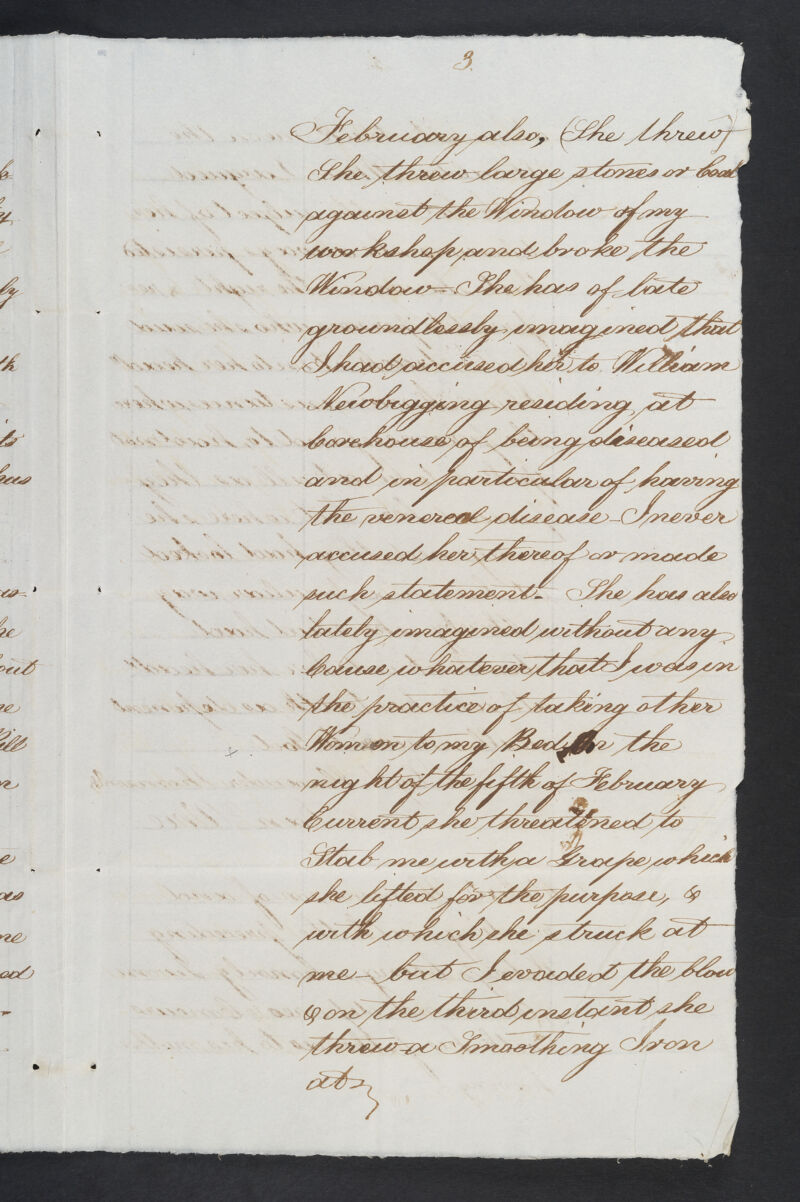 3.
February also, (She threw)
She threw large stones or Coal
against the Window of my
workshop, and broke the
Window - She has of late
groundlessly imagined that
I had accused her to William
Newbigging residing at
Corehouse of being diseased
and in particular of having
the venereal disease - I never
accused her thereof or made
such statement - She has also
lately imagined without any
Cause whatever that I was in
the practice of taking other
Women to my Bed. On the
night of the fifth of February
Current she threatened to
Stab me with a Grape which
she lifted for the purpose, &
with which she struck at
me - but I evaded the blow
& on the third instant she
threw a Smoothing Iron
at